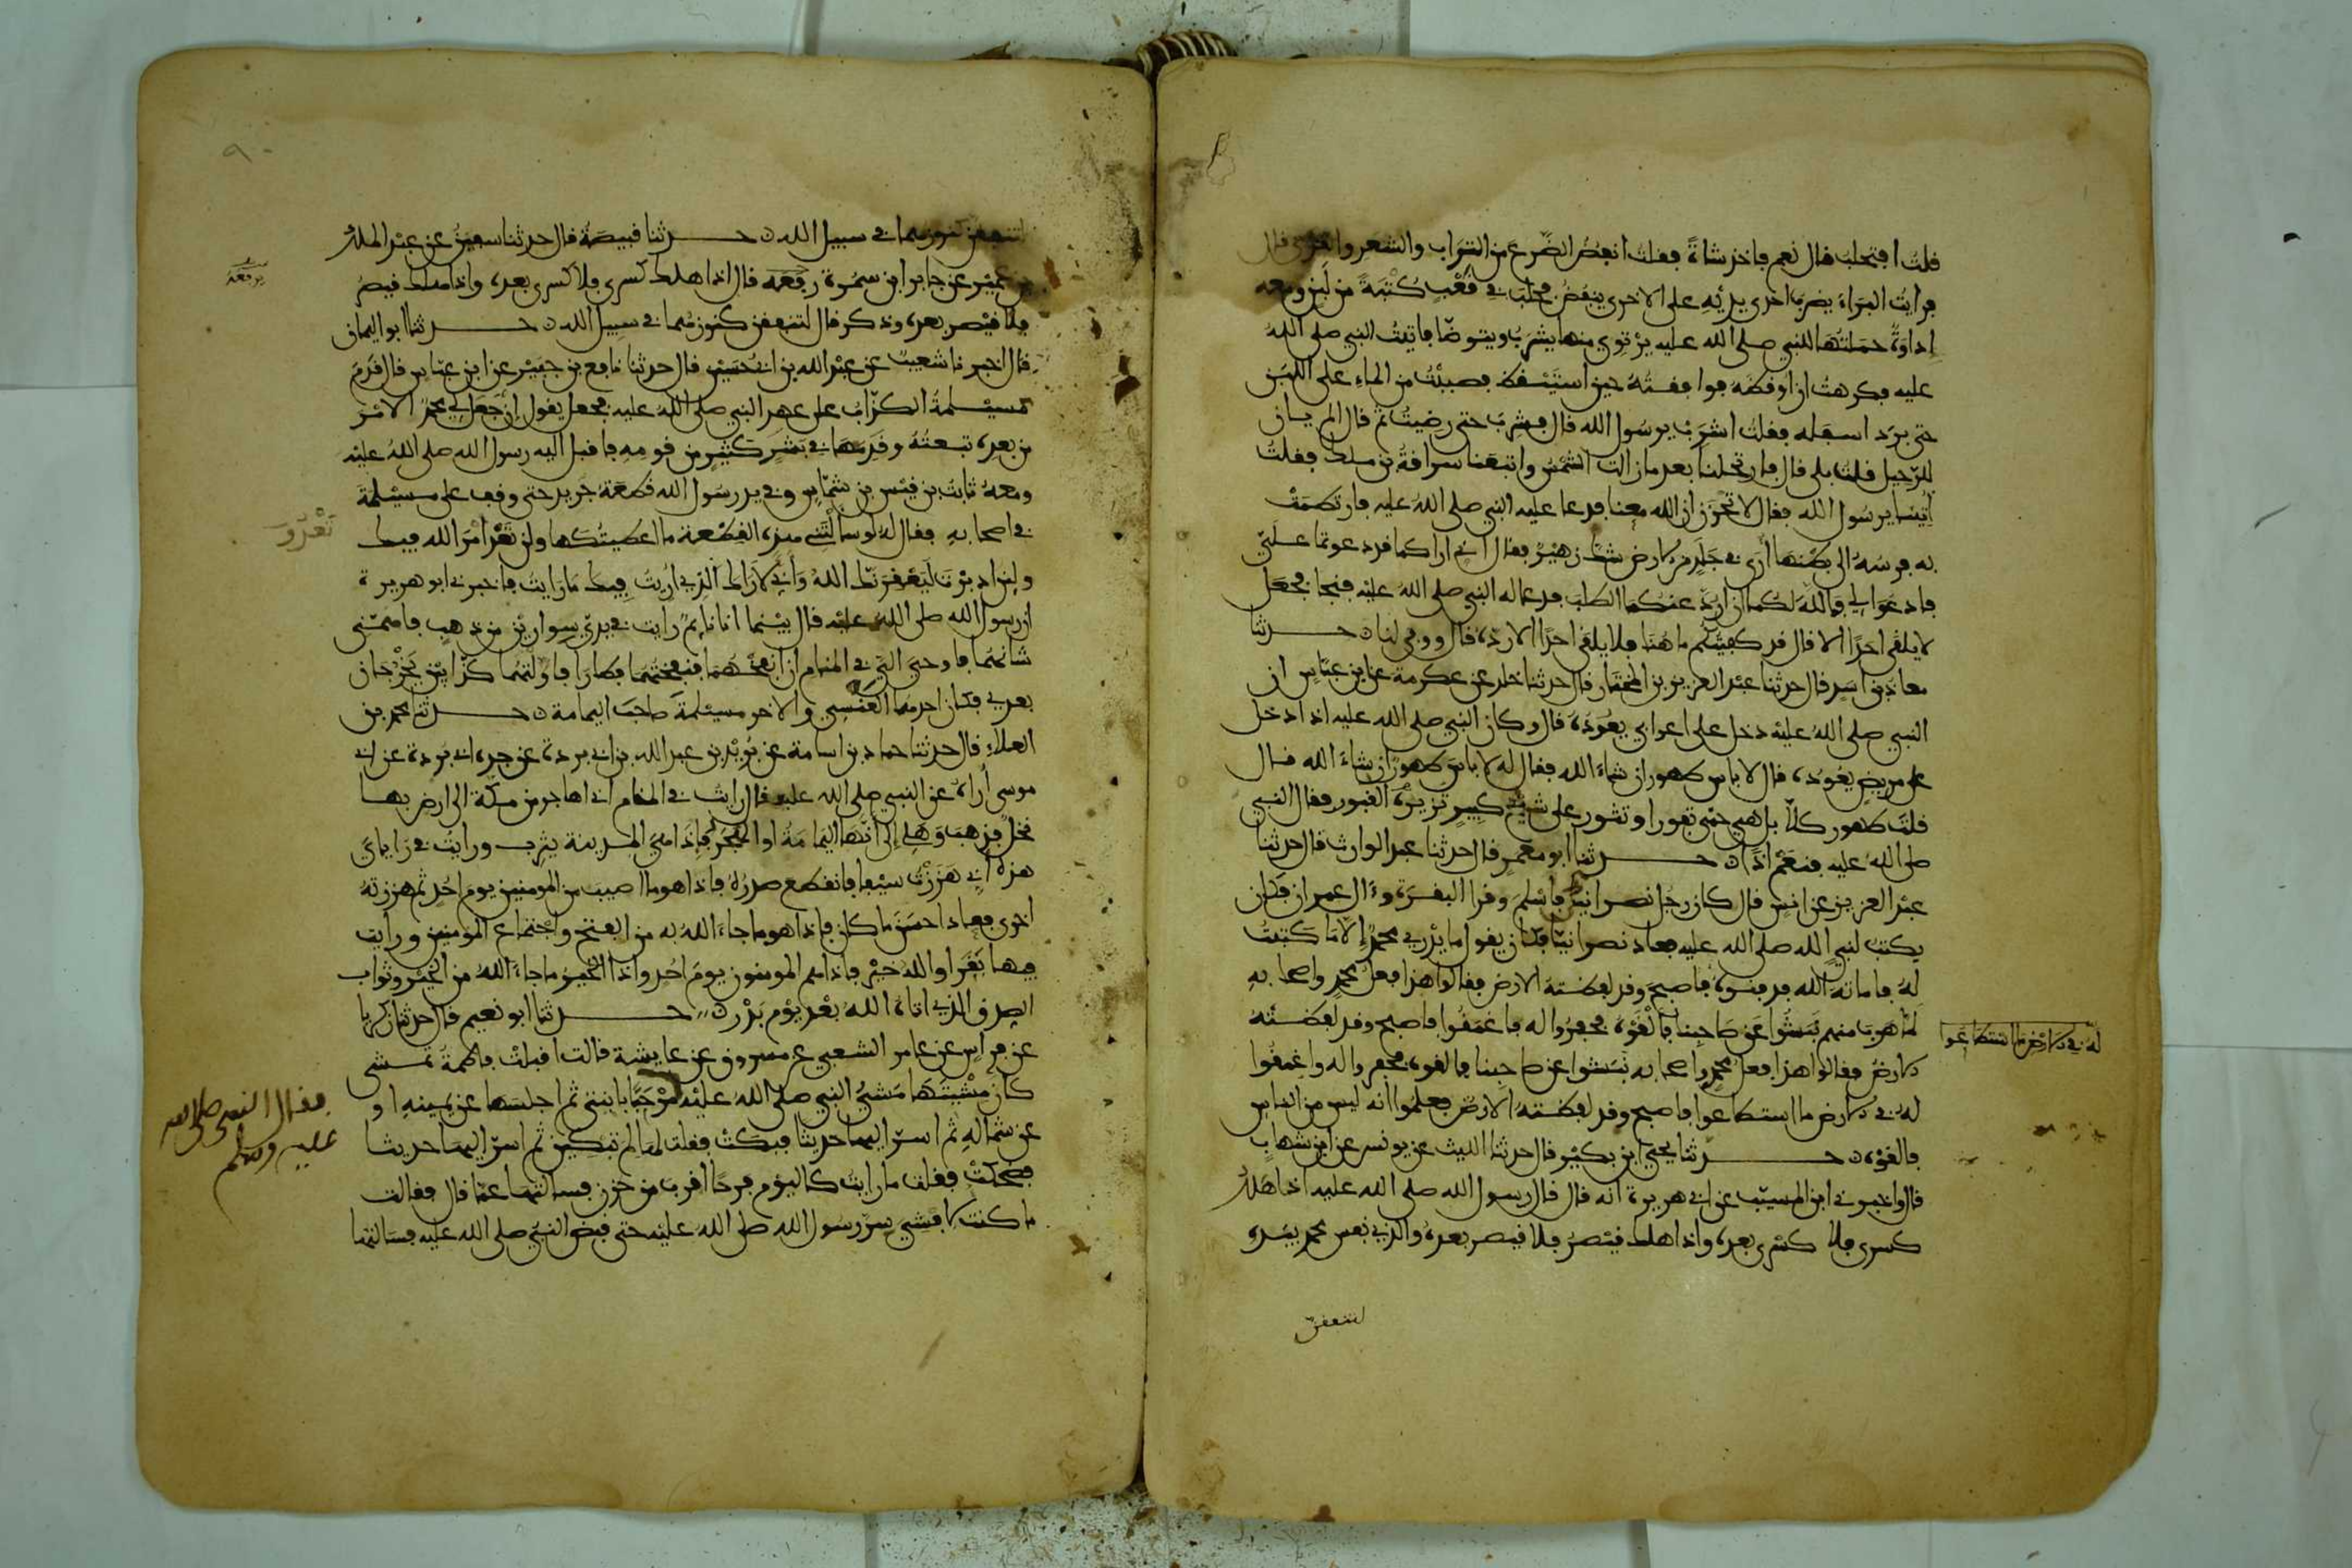 قلت افتحلب قال نعم فاخذ شاة فقلت انفض الضرع من التراب والشعر والقذى قال
فرايت البراء يضرب احدى يديه على الاخرى ينفض فحلب في قعب كثبة من لبن ومعه
اداوة حملتها للنبي صلى الله عليه يرتوي منها يشرب ويتوضا فاتيت النبي صلى الله
عليه فكرهت ان اوقظه فوافقته حين استيقظ فصببت من الماء على اللبن
حتى برد اسفله فقلت اشرب يرسول الله قال فشرب حتى رضيت ثم قال الم يان
للرحيل قلت بلى قال فارتحلنا بعد ما زالت الشمس واتبعنا سراقة بن ملك فقلت
اتينا يرسول الله فقال لا تحزن ان الله معنا فدعا عليه النبي صلى الله عليه فارتطمت
به فرسه الى بطنها ارى في جلد من الارض شك زهير فقال اني اراكما قد دعوتما علي
فادعوا لي فالله لكما ان ارد عنكما الطلب فدعا له النبي صلى الله عليه فنجا فجعل
لا يلقى احدا الا قال قد كفيتكم ما هنا فلا يلقى احدا الا رده قال ووفى لنا حدثنا
معاذ بن اسد قال حدثنا عبد العزيز بن المختار قال حدثنا خلد عن عكرمة عن ابن عباس ان
النبي صلى الله عليه دخل على اعرابي يعوده قال وكان النبي صلى الله عليه اذا دخل
على مريض يعوده قال لا باس طهور ان شاء الله فقال له لا باس طهور ان شاء الله قال
قلت طهور كلا بل هي حمى تفور او تثور على شيخ كبير تزيره القبور فقال النبي
صلى الله عليه فنعم اذا حدثنا ابو معمر قال حدثنا عبد الوارث قال حدثنا
عبد العزيز عن انس قال كان رجل نصرانيا فاسلم وقرا البقرة وءال عمران فكان
يكتب لنبي الله صلى الله عليه فعاد نصرانيا فكان يقول ما يدري محمد الا ما كتبت
له فاماته الله فدفنوه فاصبح وقد لفظته الارض فقالوا هذا فعل محمد واصحابه
لما هرب منهم نبشوا عن صاحبنا فالقوه فحفروا له فاعمقوا فاصبح وقد لفظته
الارض فقالوا هذا فعل محمد واصحابه نبشوا عن صاحبنا فالقوه فحفروا له واعمقوا
له في الارض ما استطاعوا
له في الارض ما استطاعوا فاصبح وقد لفظته الارض فعلموا انه ليس من الناس
فالقوه حدثنا يحيى ابن بكير قال حدثنا الليث عن يونس عن ابن شهاب
قال واخبرني ابن المسيب عن ابي هريرة انه قال قال رسول الله صلى الله عليه اذا هلك
كسرى فلا كسرى بعده واذا هلك قيصر فلا قيصر بعده والذي نفس محمد بيده
لتنفقن
٩٠
لتنفقن كنوزهما في سبيل الله حدثنا قبيصة قال حدثنا سفين عن عبد الملك
بن عمير عن جابر ابن سمرة رفعه قال اذا هلك كسرى فلا كسرى بعده واذا هلك قيصر
يرفعه
فلا قيصر بعده وذكر قال لتنفقن كنوزهما في سبيل الله حدثنا ابو اليمان
قال اخبرنا شعيب عن عبد الله بن ابي حسين قال حدثنا نافع بن جبير عن ابن عباس قال قدم
مسيلمة الكذاب على عهد النبي صلى الله عليه فجعل يقول ان جعل لي محمد الامر
من بعده تبعته وقدمها في بشر كثير من قومه فاقبل اليه رسول الله صلى الله عليه
ومعه ثابت بن قيس بن شماس وفي يد رسول الله قطعة جريد حتى وقف على مسيلمة
في اصحابه فقال له لو سالتني هذه القطعة ما اعطيتكها ولن تعد امر الله فيك
تعدو
ولئن ادبرت ليعقرنك الله واني لاراك الذي اريت فيك ما رايت فاخبرني ابو هريرة
ان رسول الله صلى الله عليه قال بينما انا نائم رايت في يدي سوارين من ذهب فاهمني
شانهما فاوحي الي في المنام ان انفخهما فنفختهما فطارا فاولتهما كذابين يخرجان
بعدي فكان احدهما العنسي والاخر مسيلمة صاحب اليمامة حدثنا محمد بن
العلاء قال حدثنا حماد بن اسامة عن بريد بن عبد الله بن ابي بردة عن جده ابي بردة عن ابي
موسى اراه عن النبي صلى الله عليه قال رايت في المنام اني اهاجر من مكة الى ارض بها
نخل فذهب وهلي الى انها اليمامة او الهجر فاذا هي المدينة يثرب ورايت في رؤياي
هذه اني هززت سيفا فانقطع صدره فاذا هو ما اصيب من المومنين يوم احد ثم هززته
اخرى فعاد احسن ما كان فاذا هو ما جاء الله به من الفتح واجتماع المومنين ورايت
فيها بقرا والله خير فاذا هم المومنون يوم احد واذا الخير ما جاء الله من الخير وثواب
الصدق الذي اتاه الله بعد يوم بدر حدثنا ابو نعيم قال حدثنا زكريا
عن فراس عن عامر الشعبي عن مسروق عن عايشة قالت اقبلت فاطمة تمشي
كان مشيتها مشي النبي صلى الله عليه مرحبا بابنتي ثم اجلسها عن يمينه او
فقال النبي صلى الله
عليه وسلم
عن شماله ثم اسر اليها حديثا فبكت فقلت لها لم تبكين ثم اسر اليها حديثا
فضحكت فقلت ما رايت كاليوم فرحا اقرب من حزن فسالتها عما قال فقالت
ما كنت لافشي سر رسول الله صلى الله عليه حتى قبض النبي صلى الله عليه فسالتها